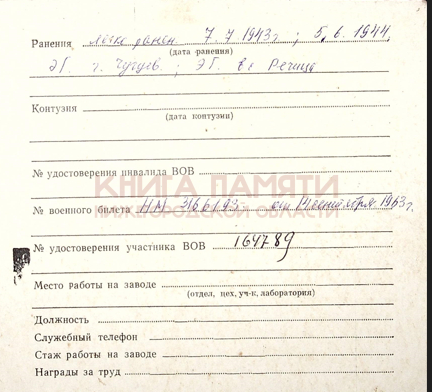 Ранения легко ранен 7.7.1943г; 5.6.1944.
(дата ранения)
ЭГ г. Чугуев; ЭГ в г Речица
Контузия
(дата контузии)
№ удостоверения инвалида ВОВ
КНИГА ПАМЯТИ
№ военного билета НЛ 3166193 от 14 сентября 1963г.
НИЖЕГОРОДСКОЙ ОБЛАСТИ
№ удостоверения участника ВОВ 164789
Место работы на заводе
(отдел, цех, уч-к, лаборатория)
Должность
Служебный телефон
Стаж работы на заводе
Награды за труд